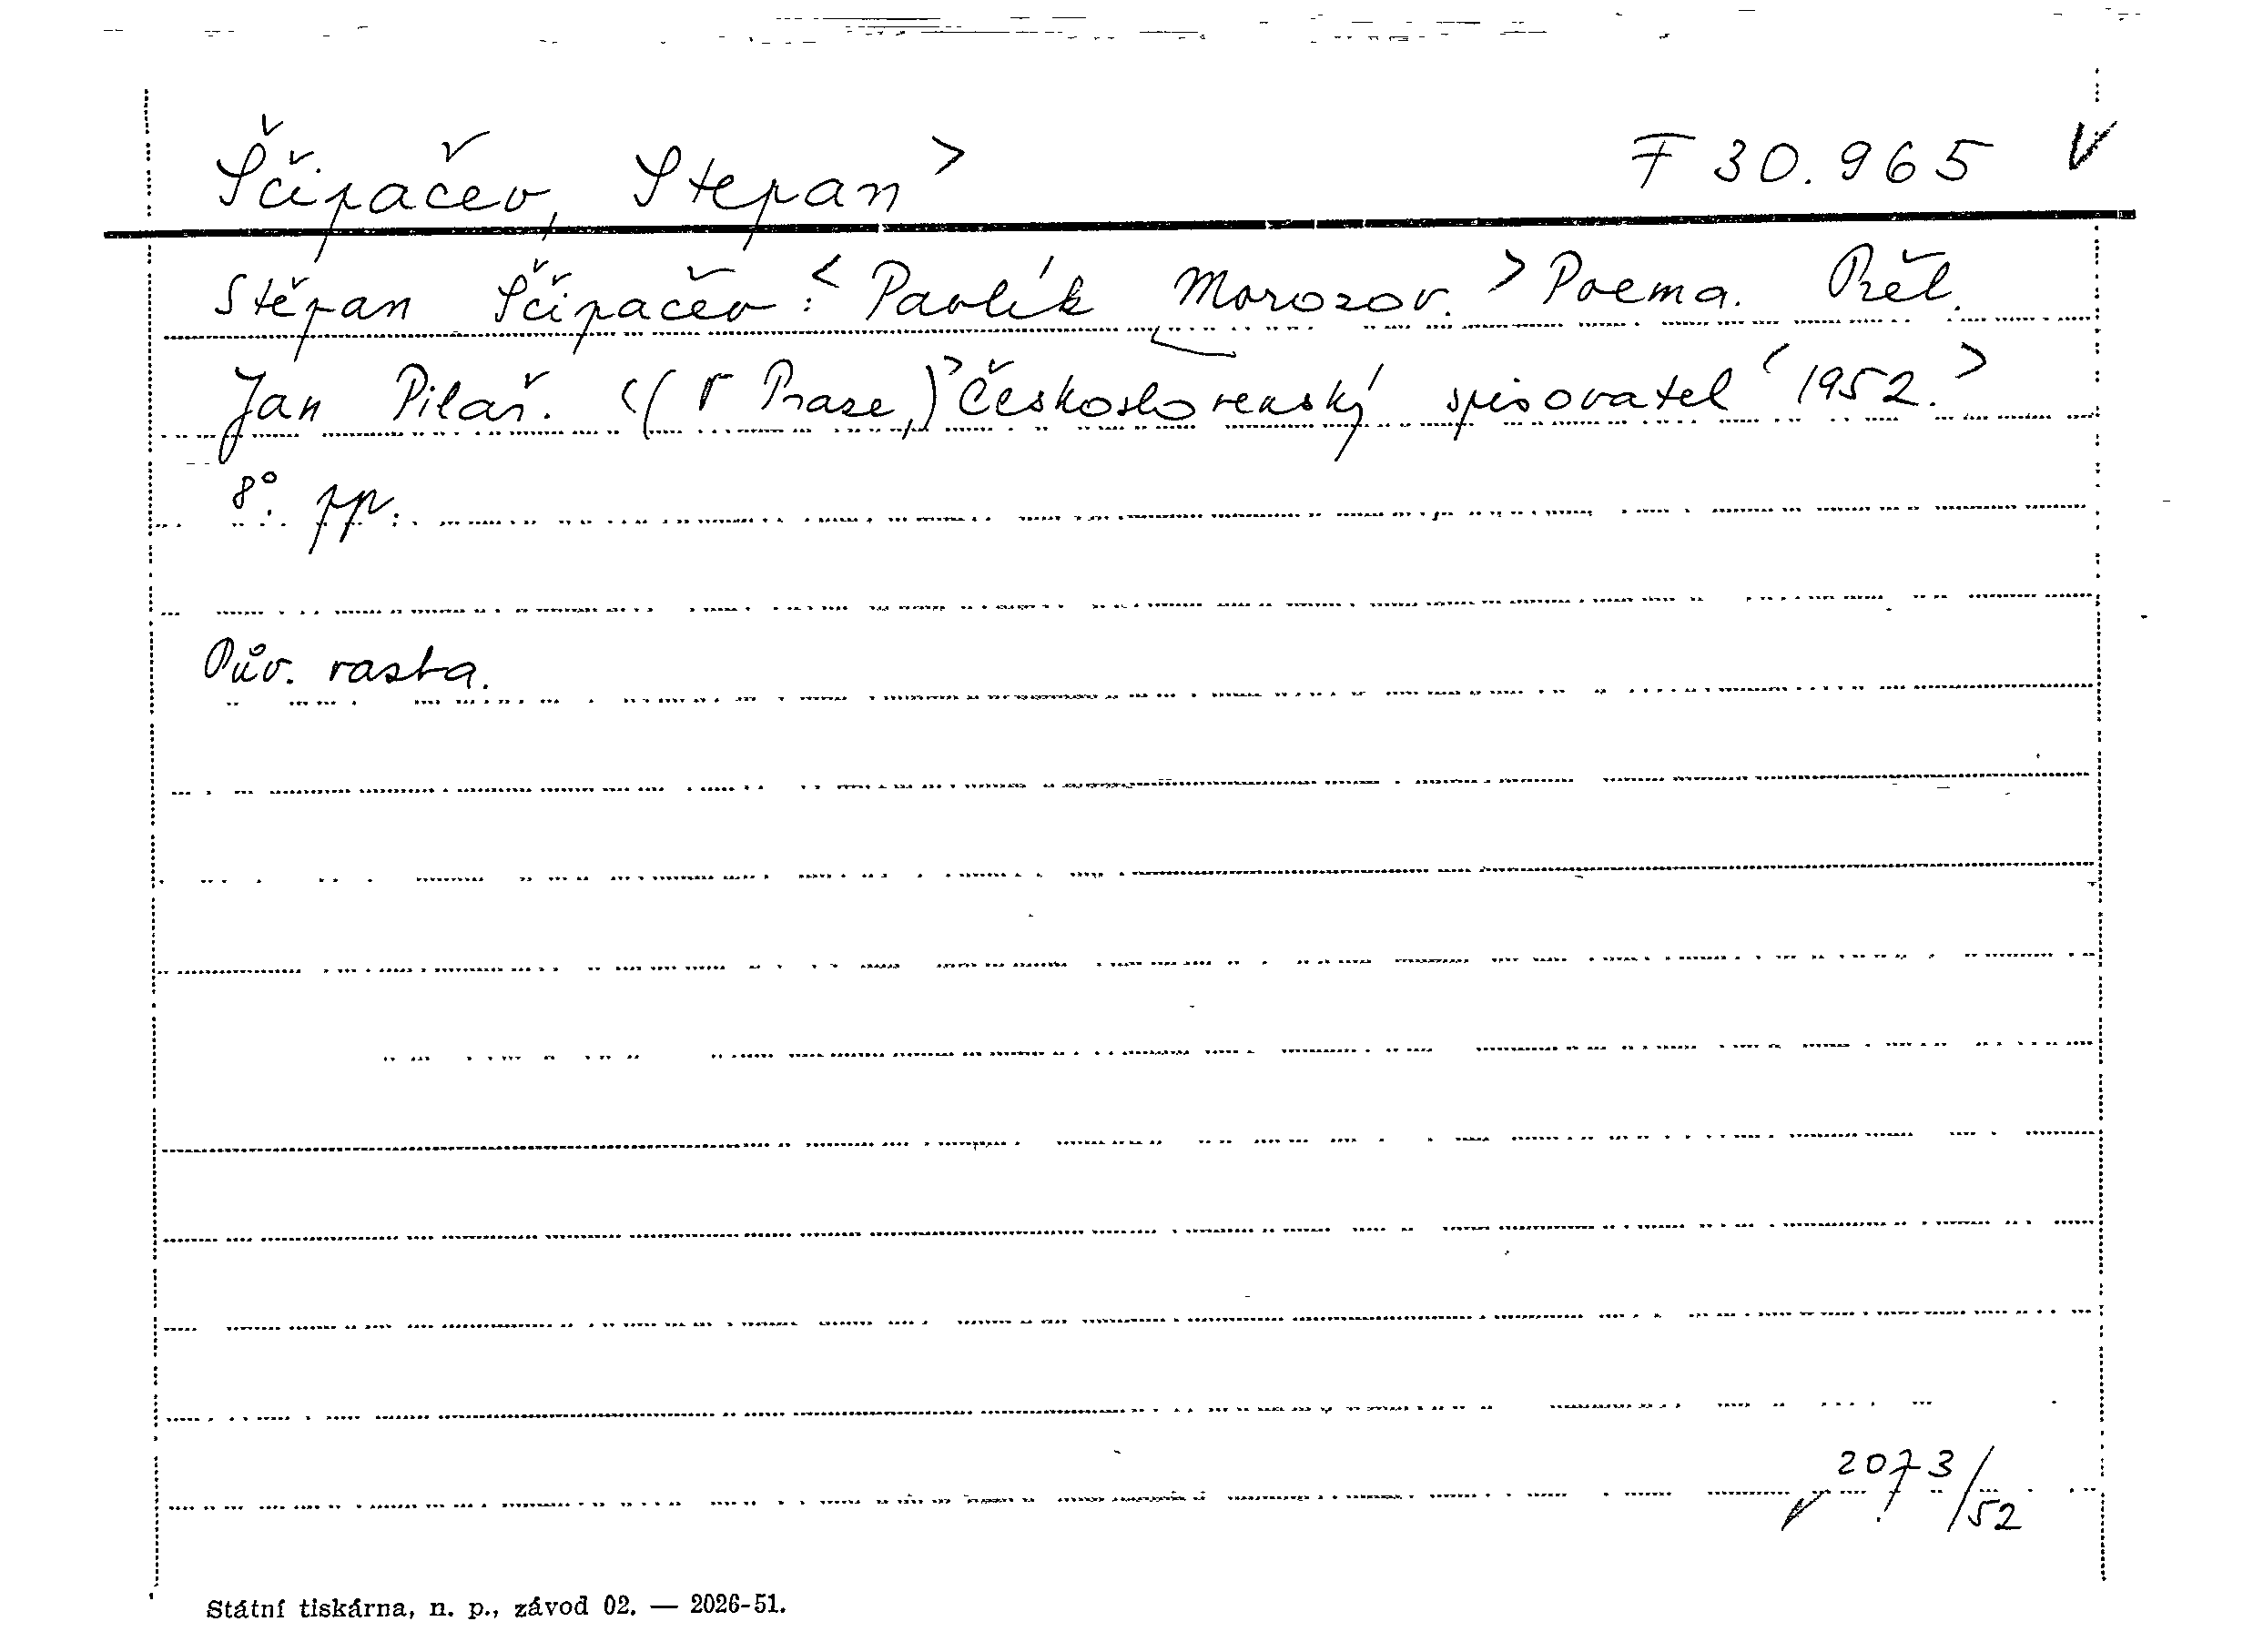 Ščipačev, Stepan > F 30.965 V
Stěpan Ščipačev: < Pavlík Morozov. > Poema. Přel.
Jan Pilař. <(V Praze,)> Československý spisovatel < 1952. >
8°. pp.
Pův. vazba.
2073/52
Státní tiskárna, n. p., závod 02. — 2026-51.